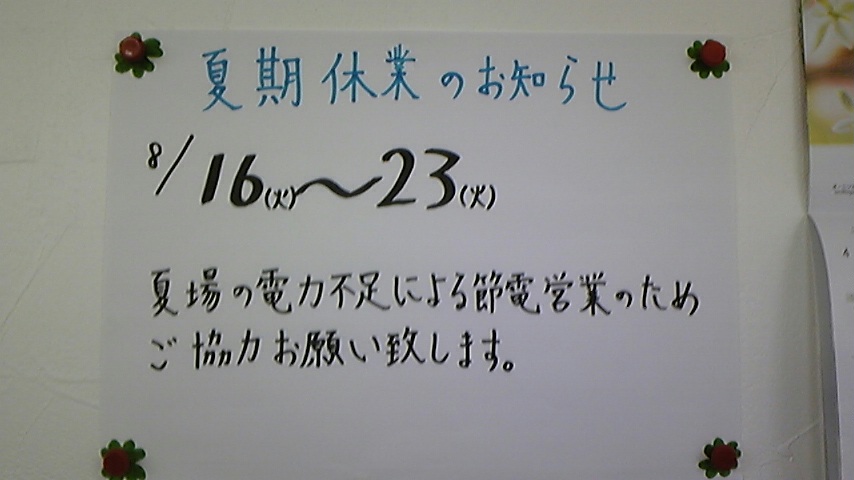 夏期休業のお知らせ
8/16(火)〜23(火)
夏場の電力不足による節電営業のため
ご協力お願い致します。